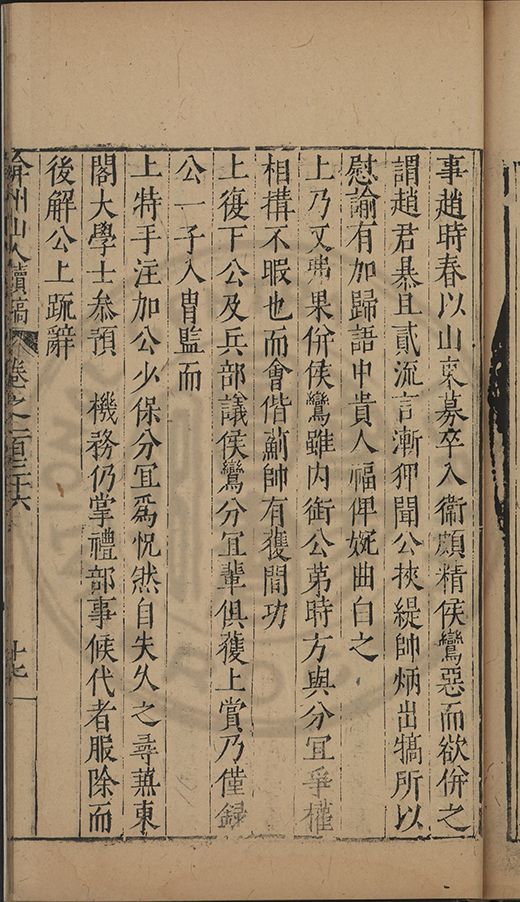 事趙時春以山東募卒入衞頗精侯鸞惡而欲併之
謂趙君暴且貳流言漸狎聞公挾緹帥炳出犒所以
慰諭有加歸語中貴人福俾婉曲白之
上乃又弗果併侯鸞雖内銜公第時方與分宜爭權
相搆不暇也而會偕薊帥有獲間功
上復下公及兵部議侯鸞分宜輩俱獲上賞乃僅録
公一子入胄監而
上特手注加公少保分宜爲怳然自失久之尋兼東
閣大學士叅預 機務仍掌禮部事候代者服除而
後解公上疏辭
弇州山人續稿 卷之一百三十六 十七